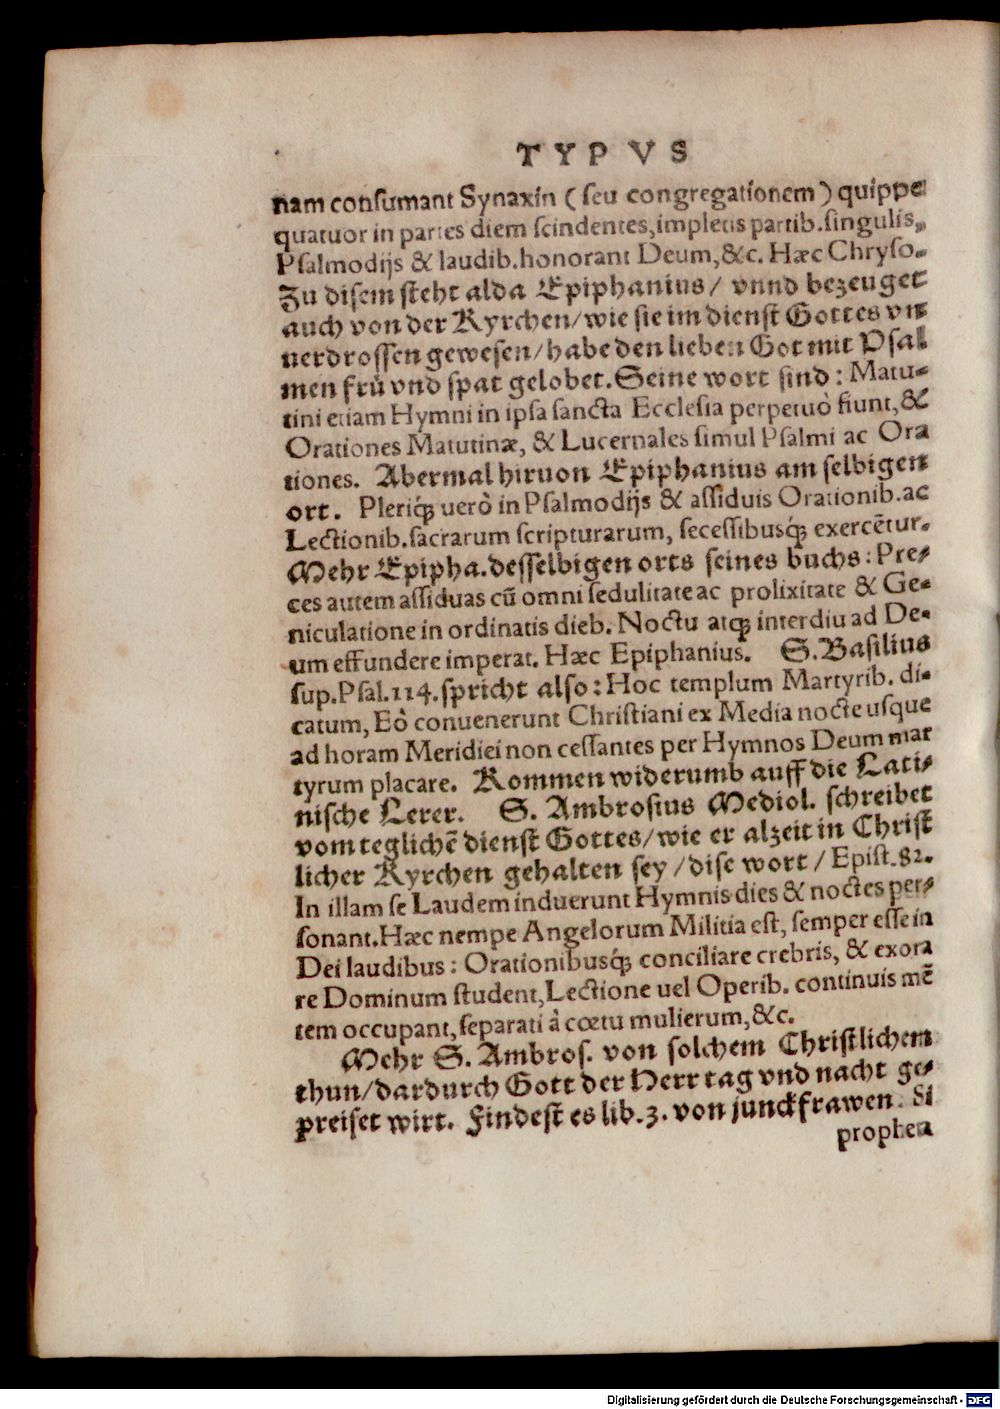 TYPVS
nam consumant Synaxin (seu congregationem) quippe
quatuor in partes diem scindentes, impletis partib. singulis,,
Psalmodijs & laudib. honorant Deum, &c. Hæc Chryso-
Zu disem steht alda Epiphanius / vnnd bezeuget
auch von der Kyrchen / wie sie im dienst Gottes vn
uerdrossen gewesen / habe den lieben Got mit Psal
men frü vnd spat gelobet. Seine wort sind : Matu-
tini etiam Hymni in ipsa sancta Ecclesia perpetuò fiunt, &
Orationes Matutinæ, & Lucernales simul Psalmi ac Ora
tiones. Abermal hiruon Epiphanius am selbigen
ort. Pleriq́; uerò in Psalmodijs & assiduis Orationib. ac
Lectionib. sacrarum scripturarum, secessibusq́; exercẽtur.
Mehr Epipha. desselbigen orts seines buchs : Pre-
ces autem assiduas cũ omni sedulitate ac prolixitate & Ge-
niculatione in ordinatis dieb. Noctu atq; interdiu ad De-
um effundere imperat. Hæc Epiphanius. S. Basilius
sup. Psal. 114. spricht also : Hoc templum Martyrib. di-
catum, Eò conuenerunt Christiani ex Media nocte usque
ad horam Meridiei non cessantes per Hymnos Deum mar
tyrum placare. Kommen widerumb auff die Lati-
nische Lerer. S. Ambrosius Mediol. schreibet
vom teglichẽ dienst Gottes / wie er alzeit in Christ
licher Kyrchen gehalten sey / dise wort / Epist. 82.
In illam se Laudem induerunt Hymnis dies & noctes per-
sonant. Hæc nempe Angelorum Militia est, semper esse in
Dei laudibus : Orationibusq́; conciliare crebris, & exora
re Dominum student, Lectione uel Operib. continuis mẽ
tem occupant, separati à cœtu mulierum, &c.
Mehr S. Ambros. von solchem Christlichem
thun / dardurch Gott der Herr tag vnd nacht ge-
preiset wirt. Findest es lib. 3. von junckfrawen. Si
propheta
Digitalisierung gefördert durch die Deutsche Forschungsgemeinschaft - DFG